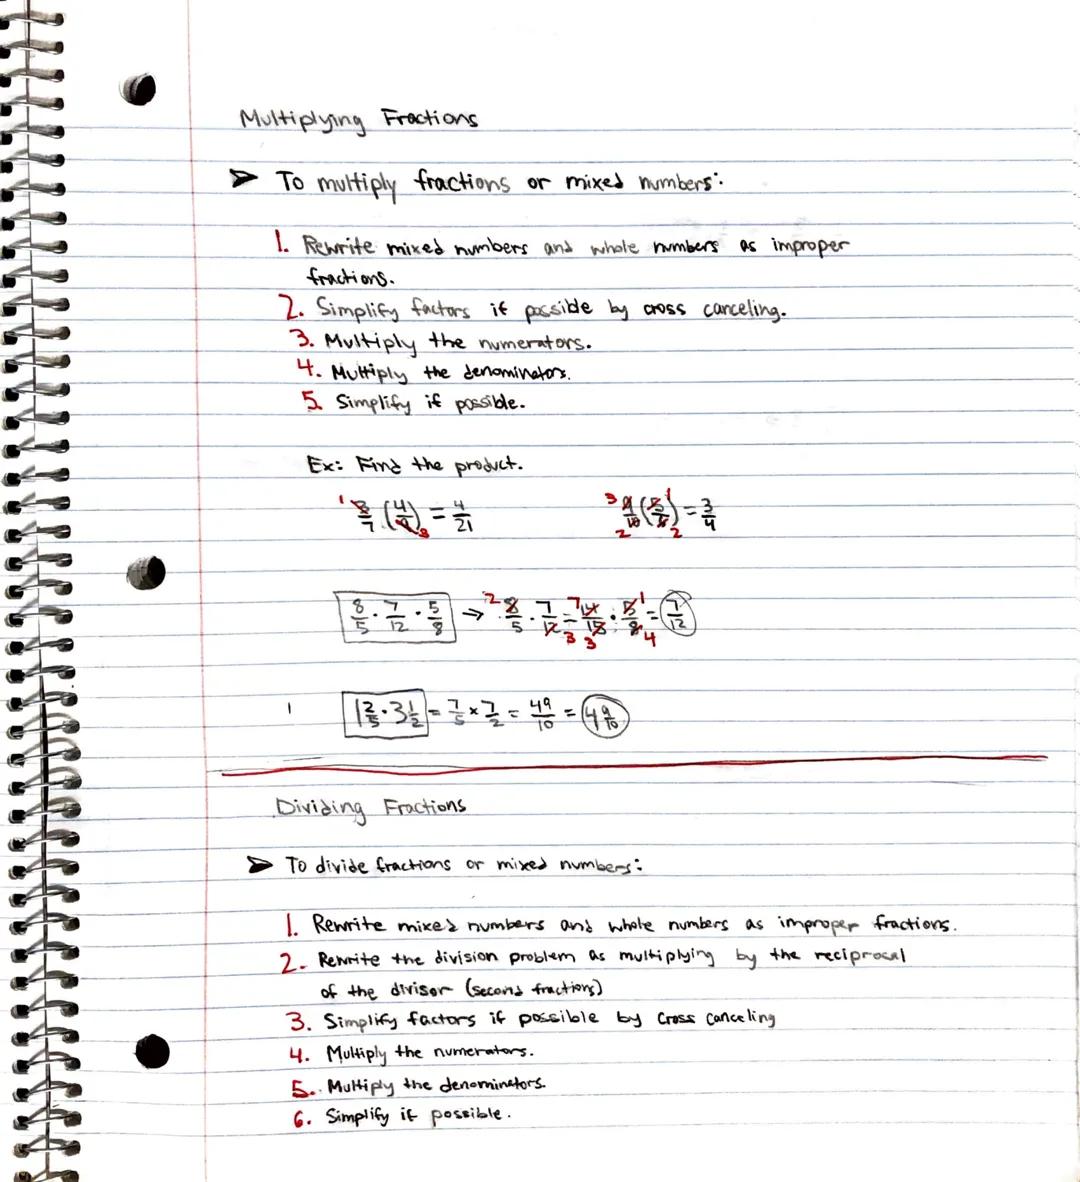 Multiplying Fractions
➤ To multiply fractions or mixed numbers:
1. Rewrite mixed numbers and whole numbers as improper
fractions.
2. Simplify factors if possible by cross canceling.
3. Multiply the numerators.
4. Multiply the denominators.
5. Simplify if possible.
Ex: Find the product.
1 3/7 (4/9) 3 = 4/21
3 9/10 2 (5/6) 1 2 = 3/4
8/5 · 7/12 · 5/8 → 2 8/5 · 7/12 3 = 7 14/15 3 · 5/8 1 4 = 7/12
1
1 2/5 · 3 1/2 = 7/5 × 7/2 = 49/10 = 4 9/10
Dividing Fractions
➤ To divide fractions or mixed numbers:
1. Rewrite mixed numbers and whole numbers as improper fractions.
2. Rewrite the division problem as multiplying by the reciprocal
of the divisor (second fractions)
3. Simplify factors if possible by cross canceling
4. Multiply the numerators.
5. Multiply the denominators.
6. Simplify if possible.